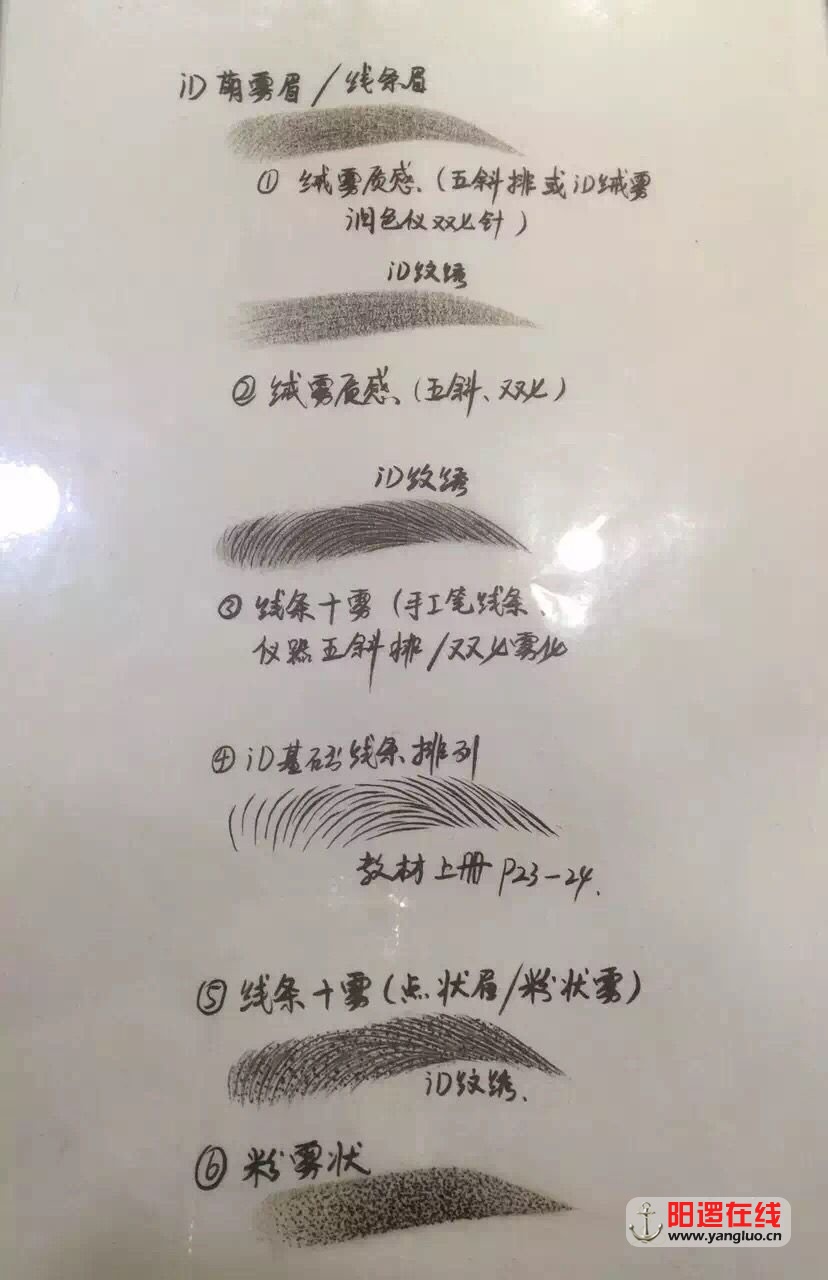 iD萌雾眉/线条眉
① 绒雾质感、(五斜排或iD绒雾
润色仪双七针)
iD纹绣
② 绒雾质感、(五斜、双七)
iD纹绣
③ 线条+雾(手工笔线条、
仪器五斜排/双七雾化
④ iD基础线条排列
教材上册P23-24.
⑤ 线条+雾(点状眉/粉状雾)
iD纹绣.
⑥ 粉雾状
阳逻在线
www.yangluo.cn